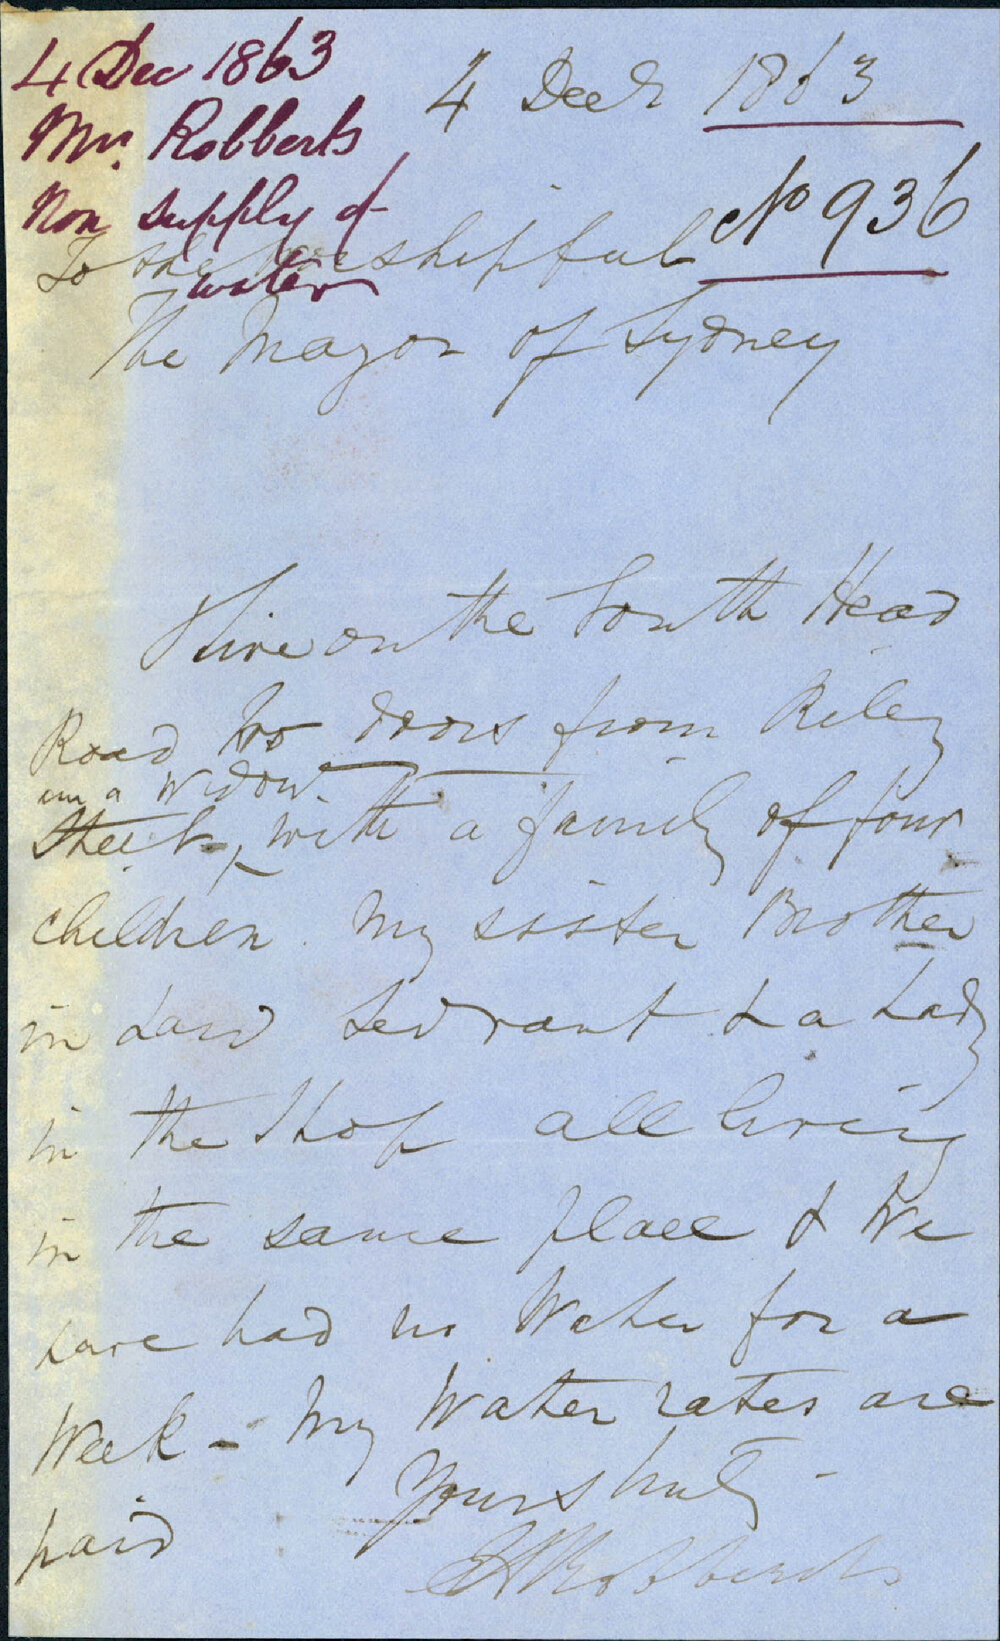 4 Dec 1863
Mrs. Robberts
Non supply of
water
4 Decr 1863
No 936
To the Worshipful
The Mayor of Sydney
I live on the South Head
Road two doors from Riley
am a widow
Street, with a family of four
children. My sister Brother
in Law Servant & a Lady
in the Shop all living
in the same place & We
have had no Water for a
Week - My Water rates are
paid
Yours truly
Robberts